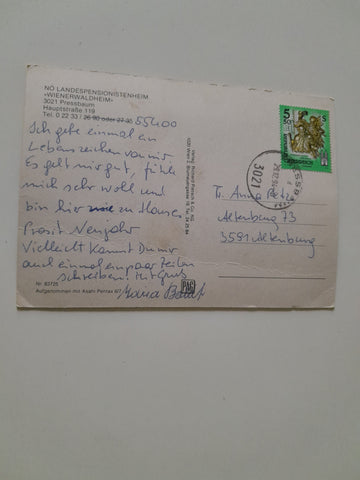 NÖ LANDESPENSIONISTENHEIM
»WIENERWALDHEIM«
3021 Pressbaum
Hauptstraße 119
Tel. 0 22 33 / 26 90 oder 27 35 55400
Ich gebe einmal ein
Lebenszeichen von mir
Es geht mir gut, fühle
mich sehr wohl und
bin hier wie zu Hause.
Prosit Neujahr
Vielleicht kannst Du mir
auch einmal ein paar Zeilen
schreiben! Mit Gruß
Nr. 83725
Aufgenommen mit Asahi Pentax 6/7
PAG
5
S
3021
D. Anna
Altenburg 73
3591 Altenburg